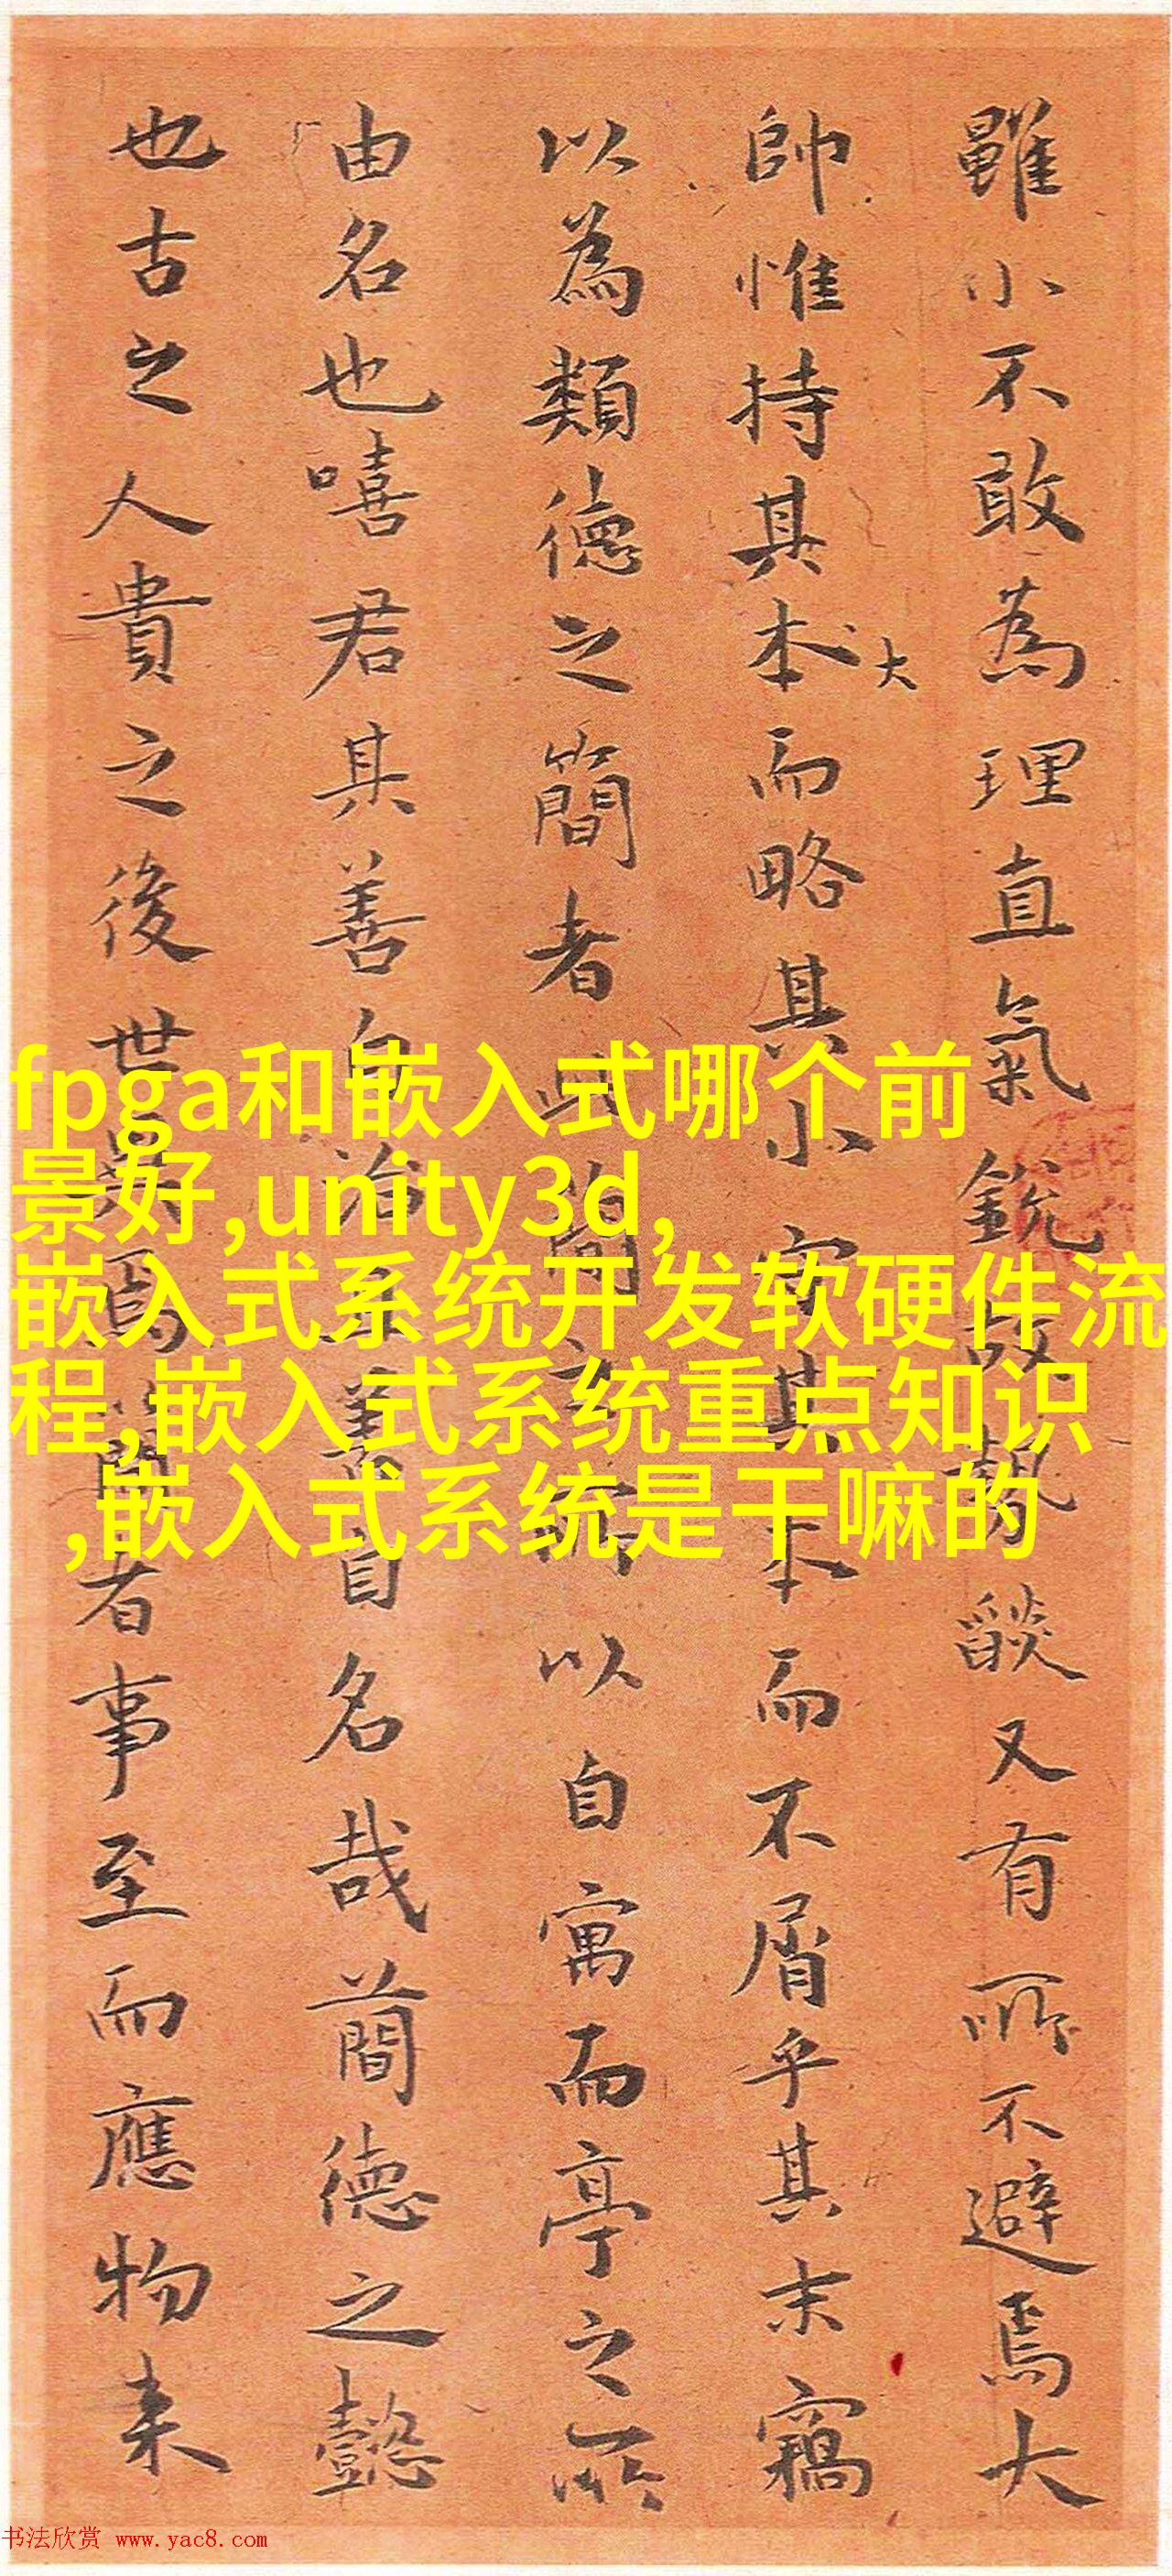 雖小不敢為理直氣銳故勢燄又有所不避焉大
帥惟持其本而略其小其本而不屑乎其末竊
大
以為類德之簡者簡以自寓而亭之所
由名也嘻君其善自治善自名哉蕳德之懿
也古之人貴之後世焉者事至而應物来
fpga和嵌入式哪个前
景好,unity3d,
嵌入式系统开发软硬件流
程,嵌入式系统重点知识
,嵌入式系统是干嘛的
书法欣赏 www.yac8.com